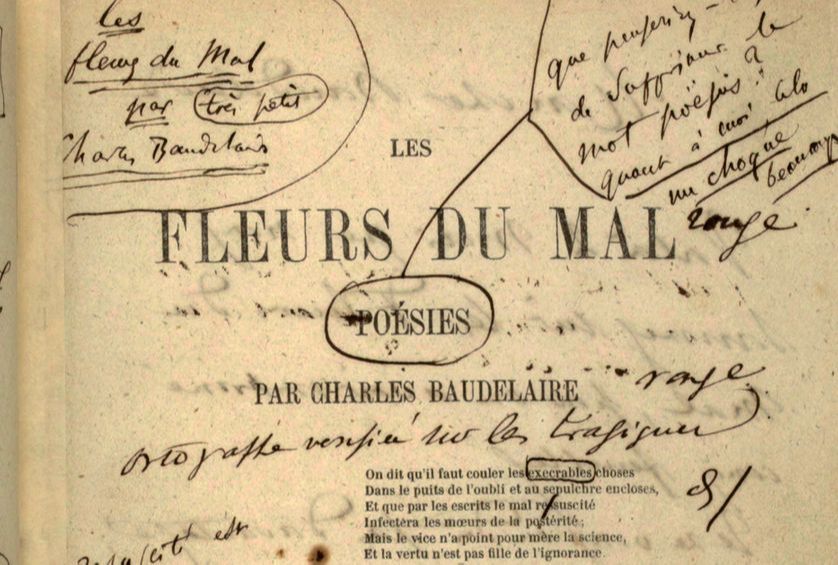 les
fleurs du Mal
par très petit
Charles Baudelaire
que penseriez-
de supprimer le
mot poésies?
quant à moi, cela
me choque
beaucoup
rouge
LES
FLEURS DU MAL
POÉSIES
PAR CHARLES BAUDELAIRE
rouge
ortographe verifiée sur les tragiques
On dit qu'il faut couler les execrables choses
Dans le puits de l'oubli et au sepulchre encloses,
Et que par les escrits le mal resuscité
Infectera les mœurs de la postérité;
Mais le vice n'a point pour mère la science,
Et la vertu n'est pas fille de l'ignorance.
est